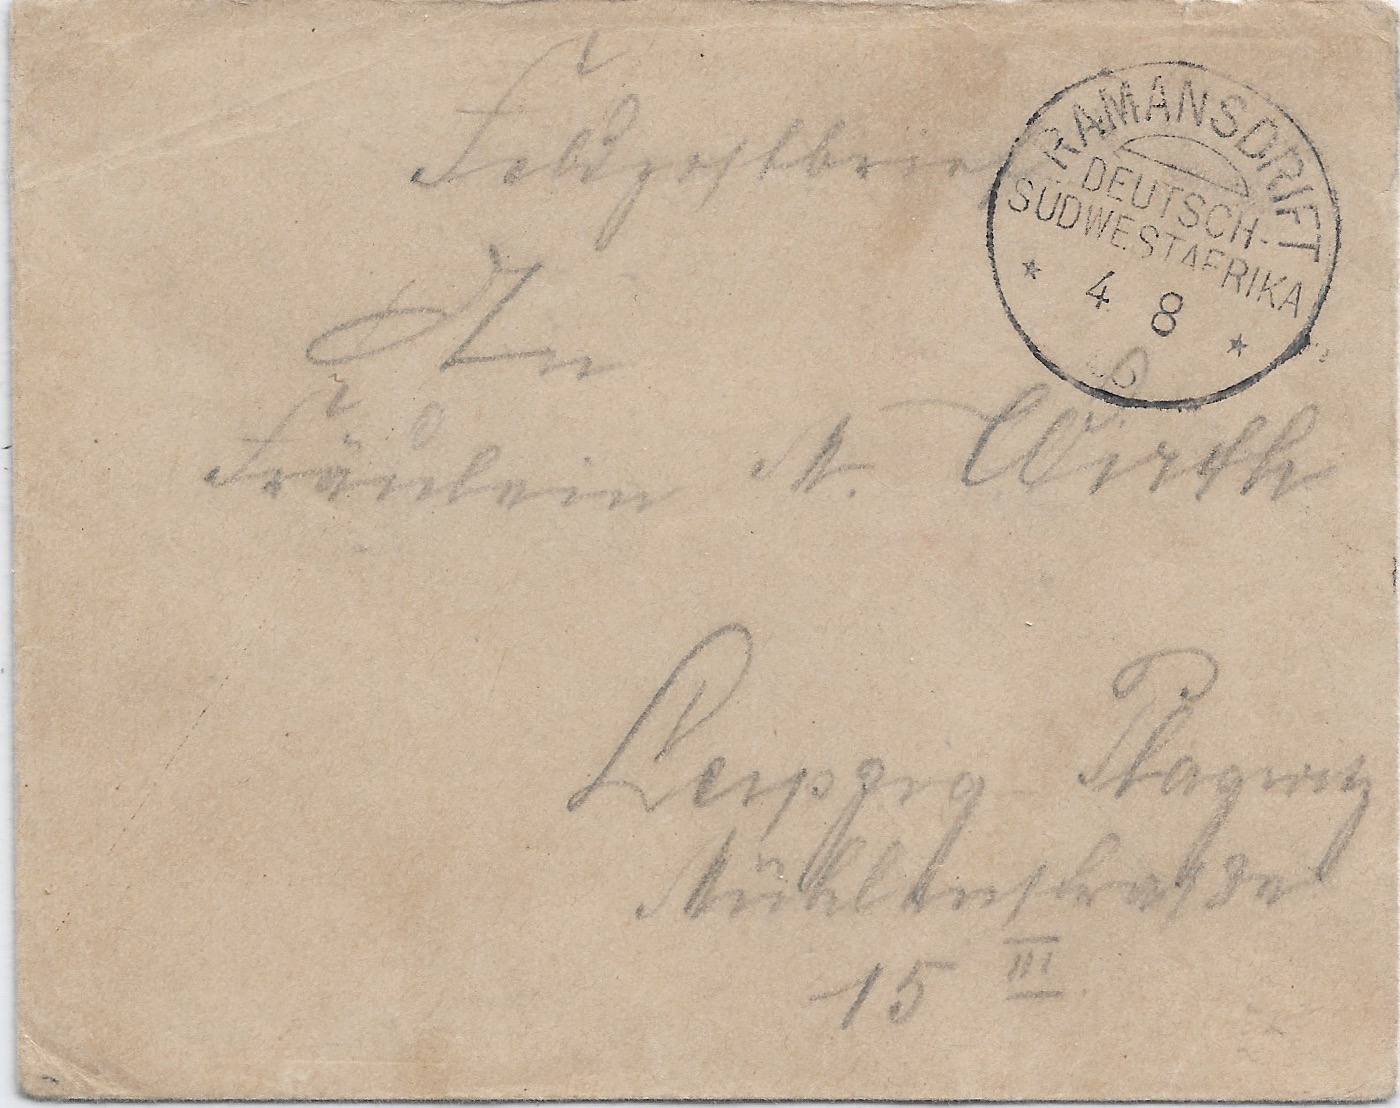 Feldpostbrief
RAMANSDRIFT
DEUTSCH-
SÜDWESTAFRIKA
* 4 8 *
An
Fräulein A. Wirth
Leipzig Plagwitz
Mühlenstrasse
15 III